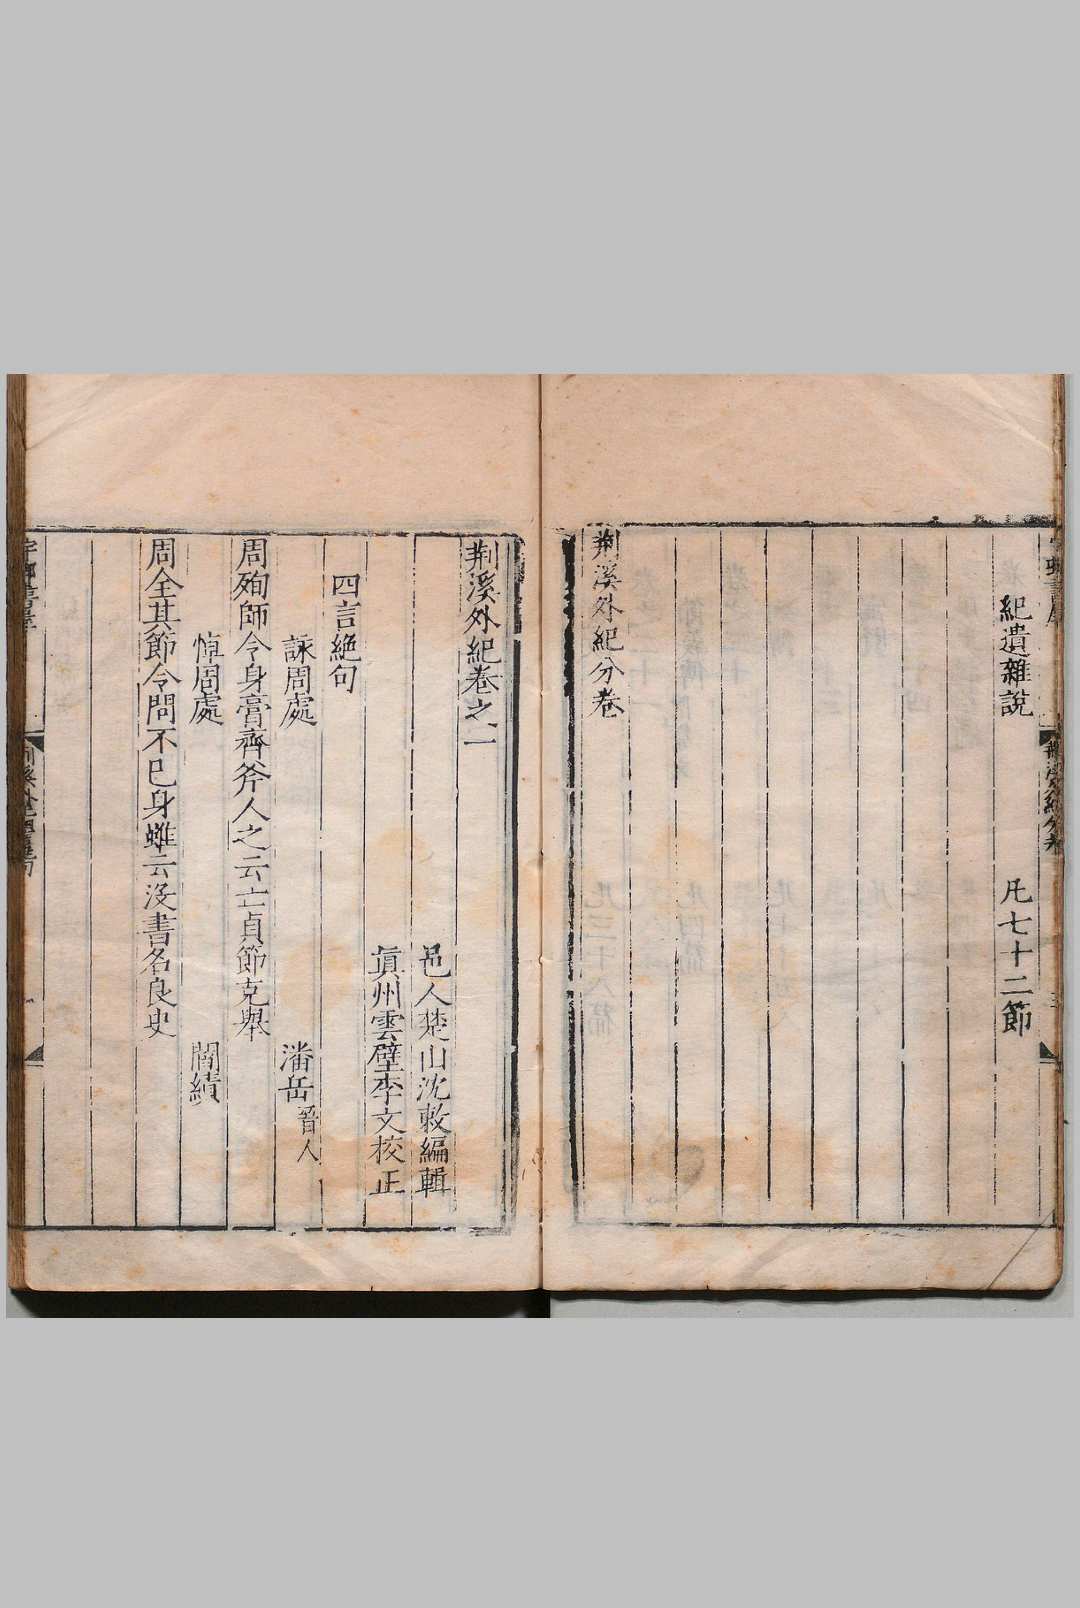 紀遺雜說 凡七十二節
荆溪外紀分卷
荆溪外紀卷之一
邑人楚山沈敕編輯
眞州雲壁李文校正
四言絕句
詠周處 潘岳 晉人
周殉師令身膏齊斧人之云亡貞節克舉
悼周處 閻纘
周全其節令問不已身雖云沒書名良史